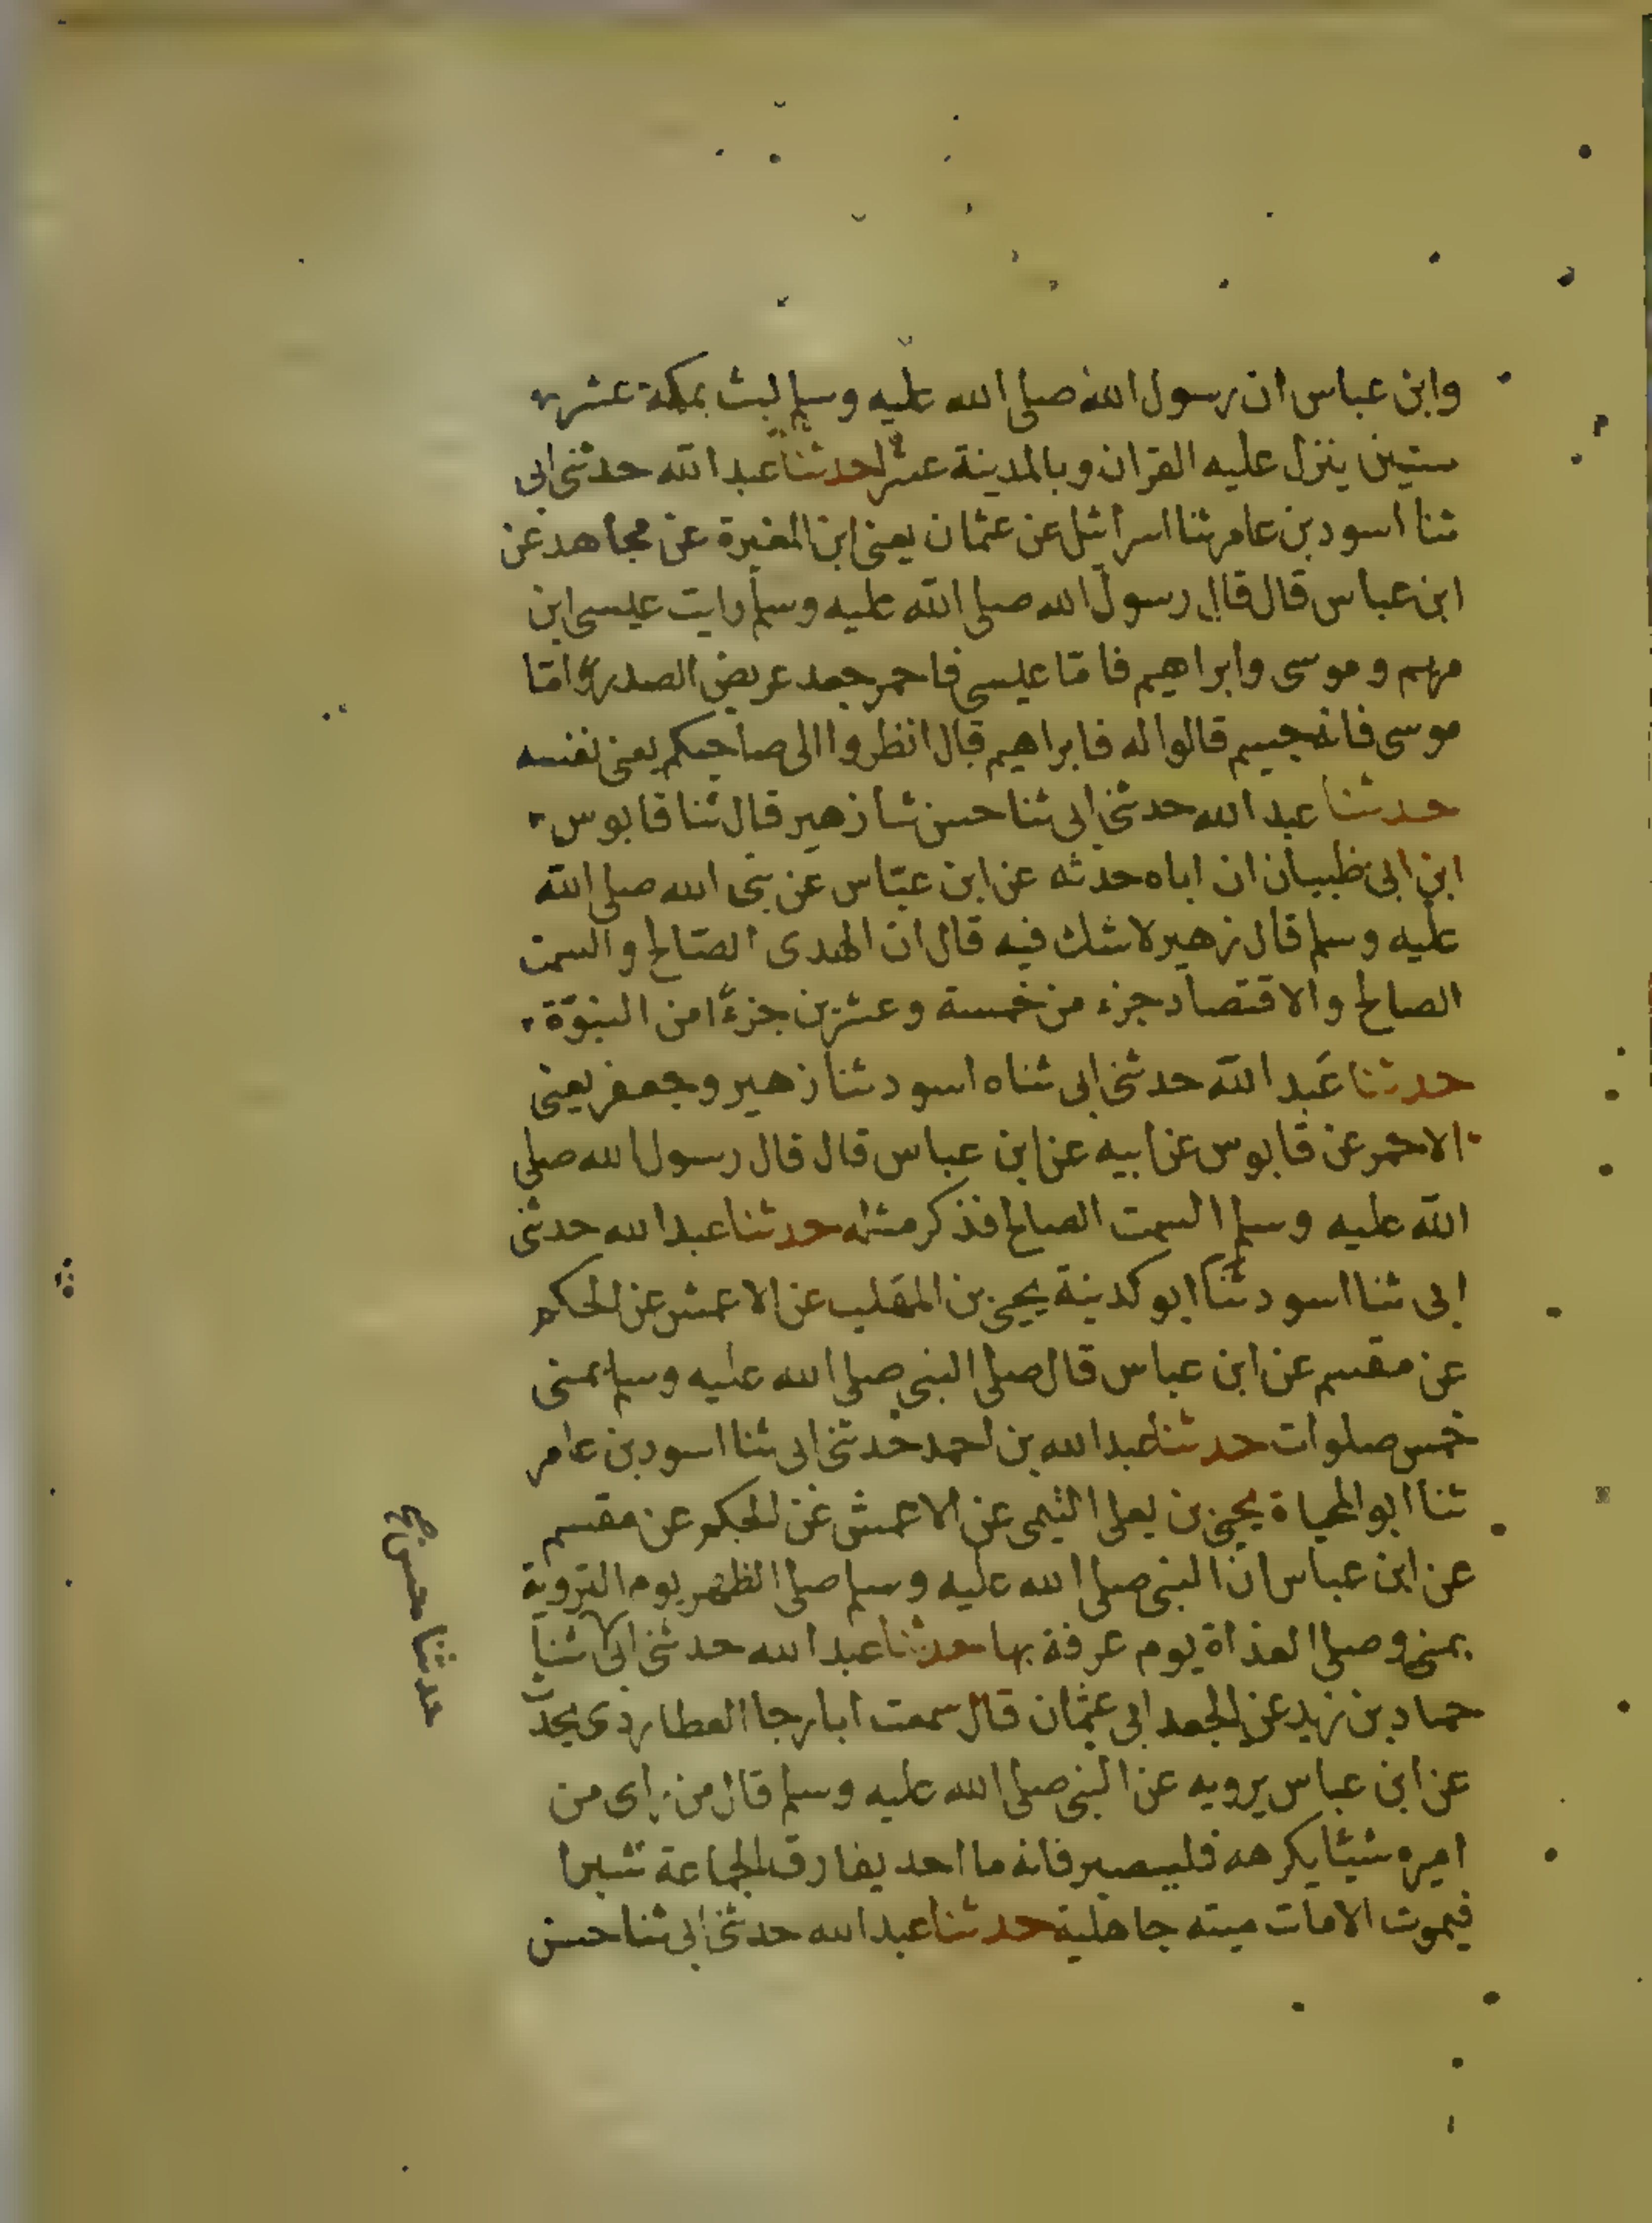 وابن عباس ان رسول الله صلى الله عليه وسلم لبث بمكة عشر
سنين ينزل عليه القران وبالمدينة عشرا حدثنا عبد الله حدثنى ابى
ثنا اسود بن عامر ثنا اسرائيل عن عثمان يعنى ابن المغيرة عن مجاهد عن
ابن عباس قال قال رسول الله صلى الله عليه وسلم رايت عيسى ابن
مريم وموسى وابراهيم فامّا عيسى فاحمر جعد عريض الصدر وامّا
موسى فانه جسيم قالوا له فابراهيم قال انظروا الى صاحبكم يعنى نفسه
حدثنا عبد الله حدثنى ابى ثنا حسن ثنا زهير قال ثنا قابوس
ابن ابى ظبيان ان اباه حدثه عن ابن عبّاس عن نبى الله صلى الله
عليه وسلم قال زهير لا شك فيه قال ان الهدى الصّالح والسمت
الصالح والاقتصاد جزء من خمسة وعشرين جزءًا من النبوّة
حدثنا عبد الله حدثنى ابى ثناه اسود ثنا زهير وجعفر يعنى
الاحمر عن قابوس عن ابيه عن ابن عباس قال قال رسول الله صلى
الله عليه وسلم السمت الصالح فذكر مثله حدثنا عبد الله حدثنى
ابى ثنا اسود ثنا ابو كدينة يحيى بن المهلب عن الاعمش عن الحكم
عن مقسم عن ابن عباس قال صلى النبى صلى الله عليه وسلم بمنى
خمس صلوات حدثنا عبد الله بن احمد حدثنى ابى ثنا اسود بن عامر
ثنا ابو المحياة يحيى بن يعلى التيمى عن الاعمش عن الحكم عن مقسم
عن ابن عباس ان النبى صلى الله عليه وسلم صلى الظهر يوم التروية
بمنى وصلى الغداة يوم عرفة بها حدثنا عبد الله حدثنى ابى ثنا
حماد بن زيد عن الجعد ابى عثمان قال سمعت ابا رجا العطاردى يحدث
عن ابن عباس يرويه عن النبى صلى الله عليه وسلم قال من راى من
اميره شيئا يكرهه فليصبر فانه ما احد يفارق الجماعة شبرا
فيموت الا مات ميته جاهلية حدثنا عبد الله حدثنى ابى ثنا حسن
حدثنا حسن صح